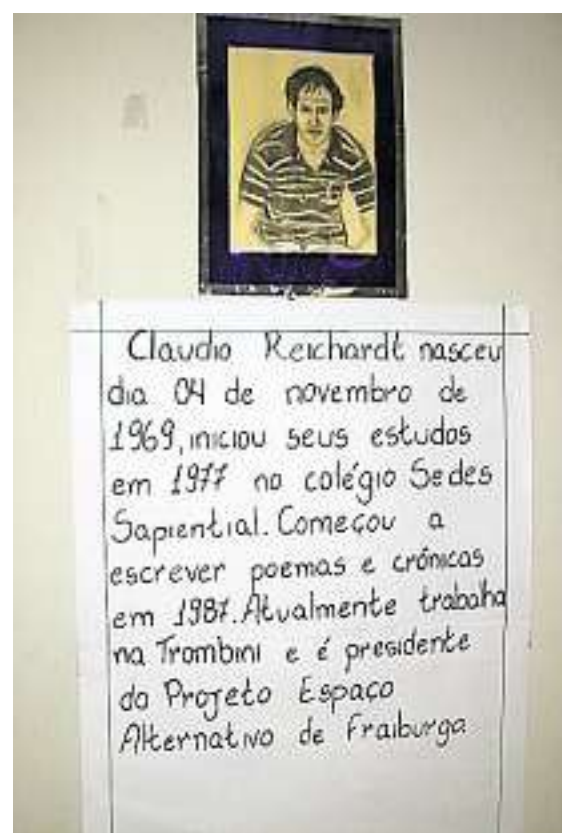 Claudio Reichardt nasceu
dia 04 de novembro de
1969, iniciou seus estudos
em 1977 no colégio Sedes
Sapiential. Começou a
escrever poemas e crônicas
em 1987. Atualmente trabalha
na Trombini e é presidente
do Projeto Espaço
Alternativo de Fraiburgo